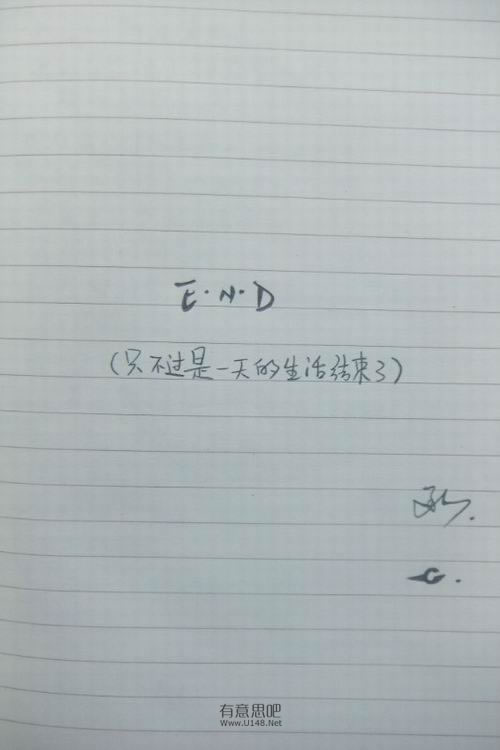 E·N·D
(只不过是一天的生活结束了)
有意思吧
Www.U148.Net